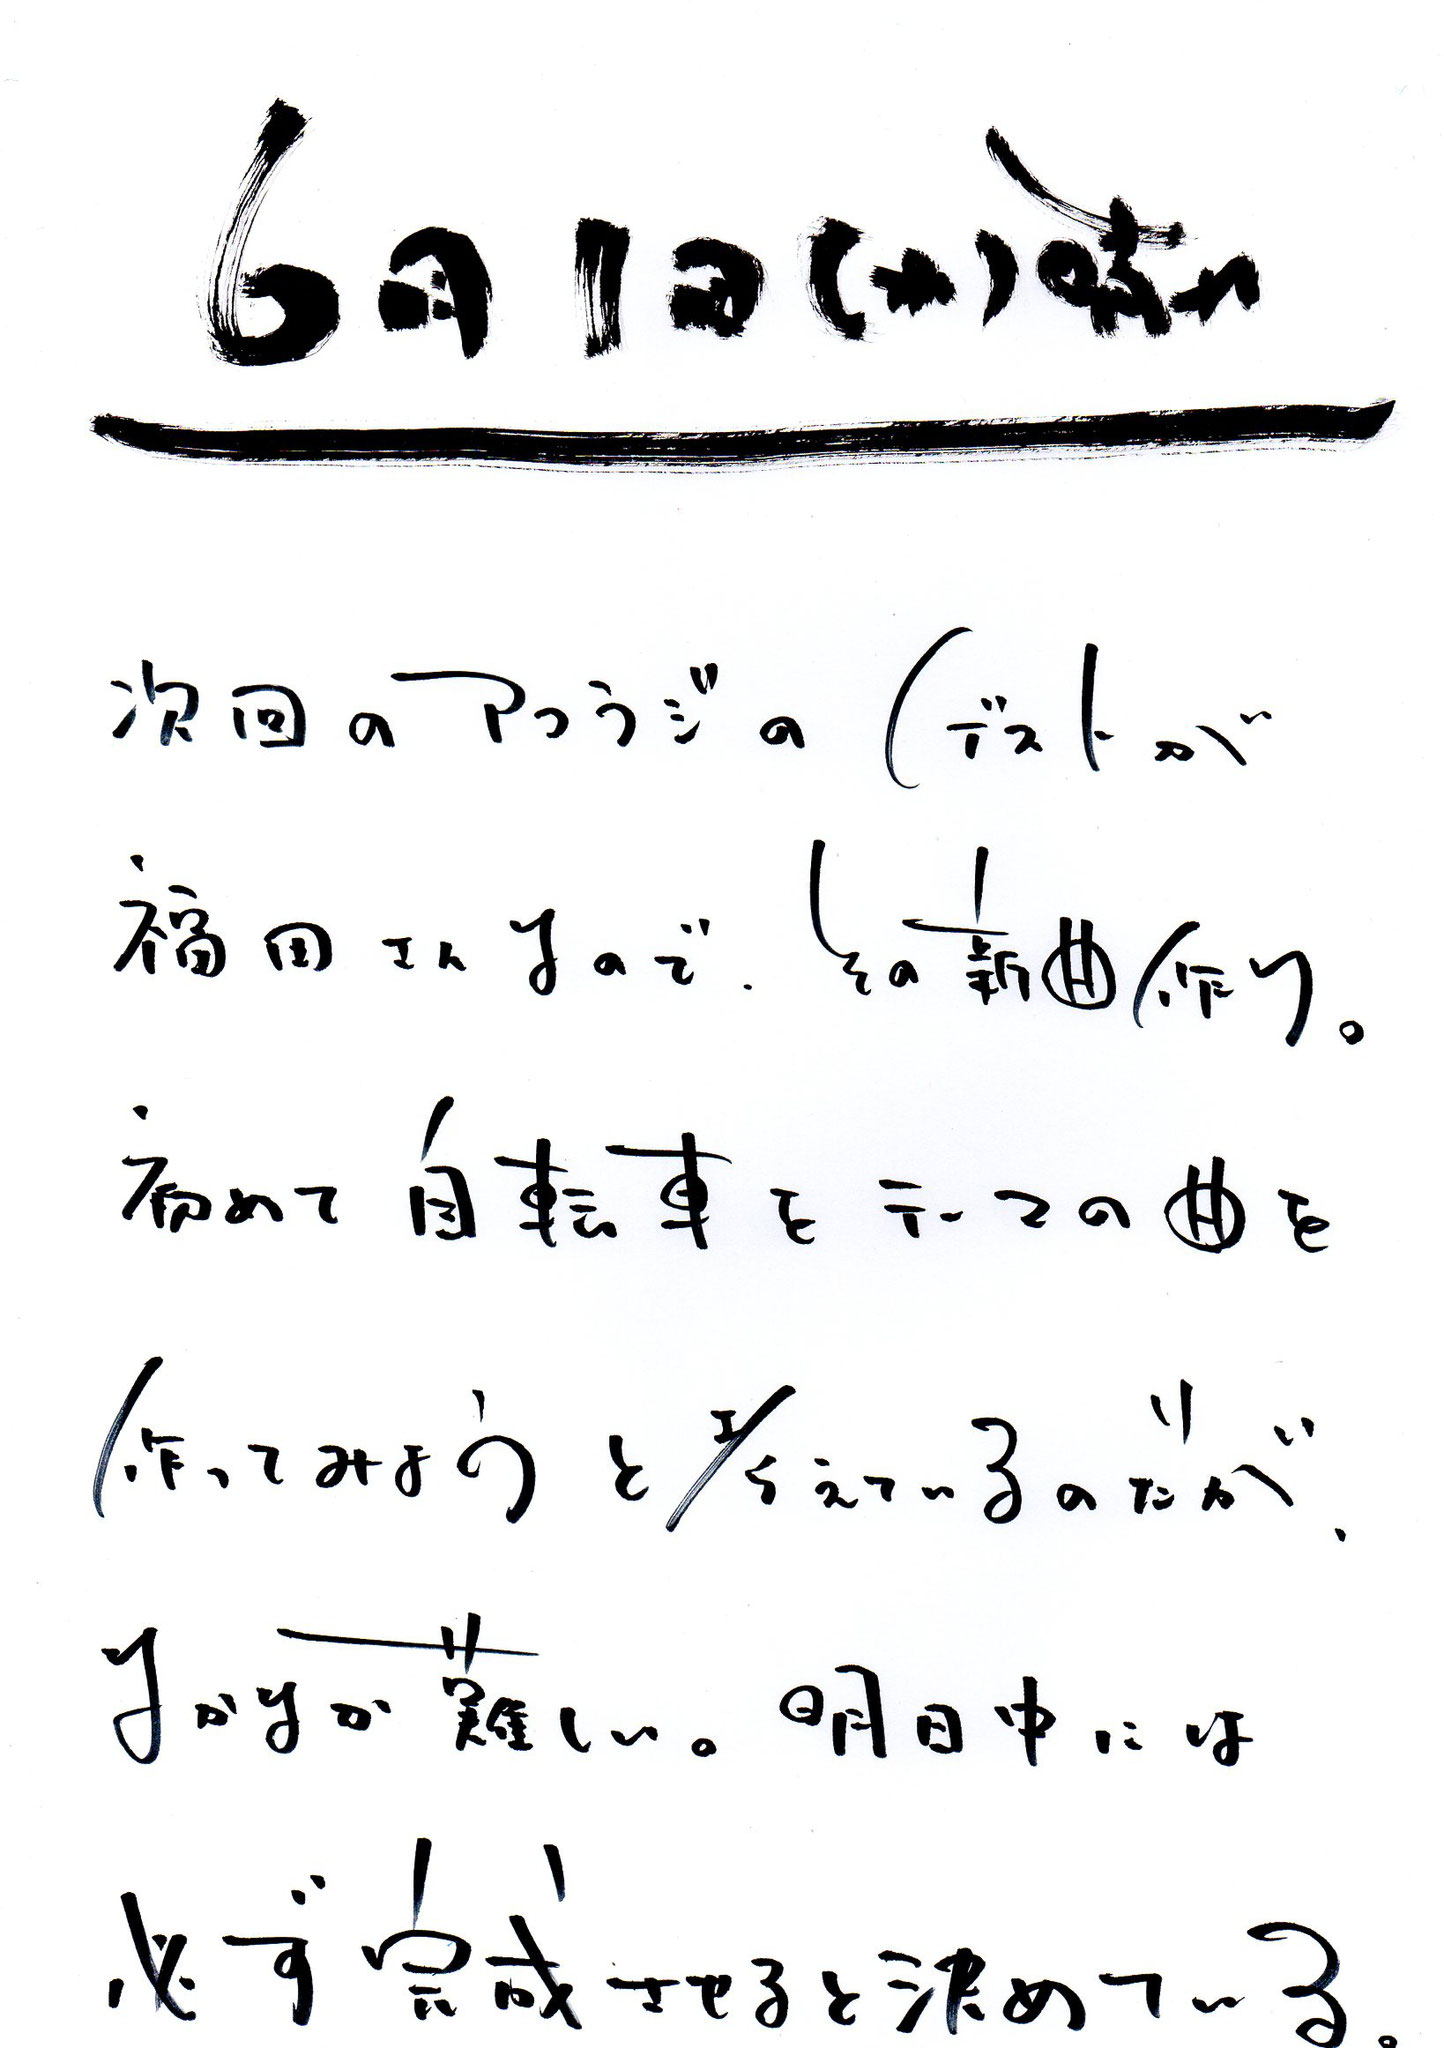 6月1日(木)晴れ
次回のアコラジのゲストが
福田さんなので、その新曲作り。
初めて自転車をテーマの曲を
作ってみようと考えているのだが、
なかなか難しい。明日中には
必ず完成させると決めている。